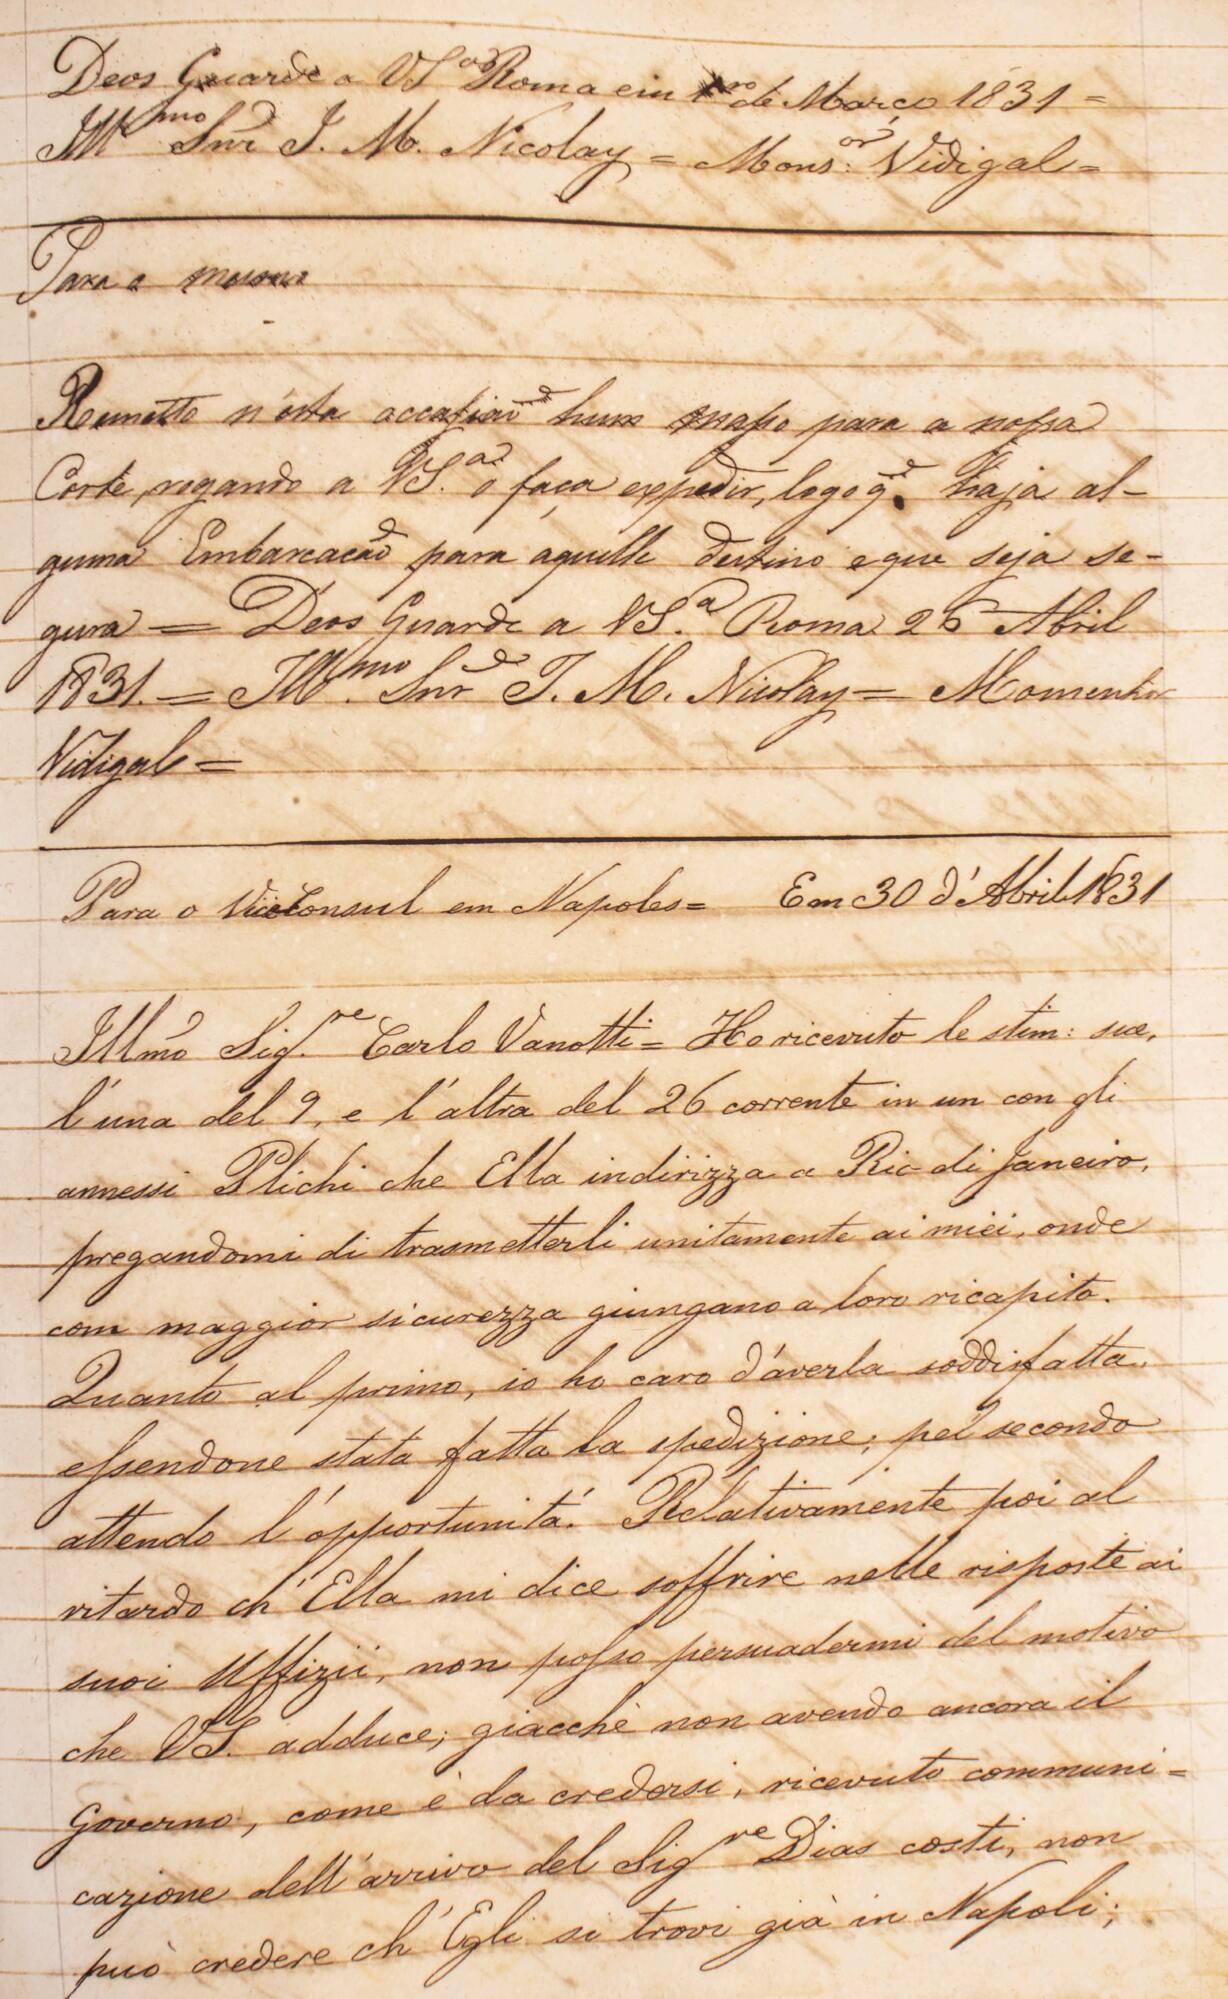 Deos Guarde a VS.ª Roma em 1ro de Março 1831 =
Illmo Snr J. M. Nicolay = Monsor: Vidigal =
Para o mesmo
Remetto n'esta occasião hum masso para a nossa
Corte, rogando a VS.ª o faça expedir, logo q. haja al-
guma Embarcacão para aquelle destino e que seja se-
gura = Deos Guarde a VS.ª Roma 26 Abril
1831. = Illmo. Snr J. M. Nicolay = Monsenhor
Vidigal =
Para o Vice Consul em Napoles = Em 30 d'Abril 1831
Illmo Sig.re Carlo Vanotti = Ho ricevuto le stim: sue,
l'una del 9, e l'altra del 26 corrente in un con gli
annessi Plichi che Ella indirizza a Rio di Janeiro,
pregandomi di trasmetterli unitamente ai miei, onde
com maggior sicurezza giungano a loro ricapito.
Quanto al primo, io ho caro d'averla soddisfatta,
essendone stata fatta la spedizione; pel secondo
attendo l'opportunitá. Relativamente poi al
ritardo ch'Ella mi dice soffrire nelle risposte ai
suoi Uffizii, non posso persuadermi del motivo
che VS. adduce; giacchè non avendo ancora il
Governo, come è da credersi, ricevuto communi=
cazione dell'arrivo del Sigre Dias costi, non
può credere ch'Egli si trovi già in Napoli;